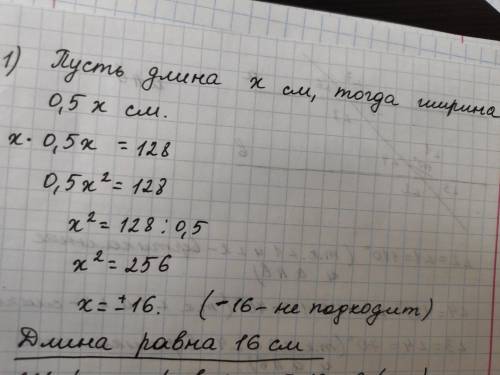 1) Пусть длина x см, тогда ширина
0,5 x см.
x · 0,5x = 128
0,5x² = 128
x² = 128 : 0,5
x² = 256
x = ±16. (-16 - не подходит)
Длина равна 16 см